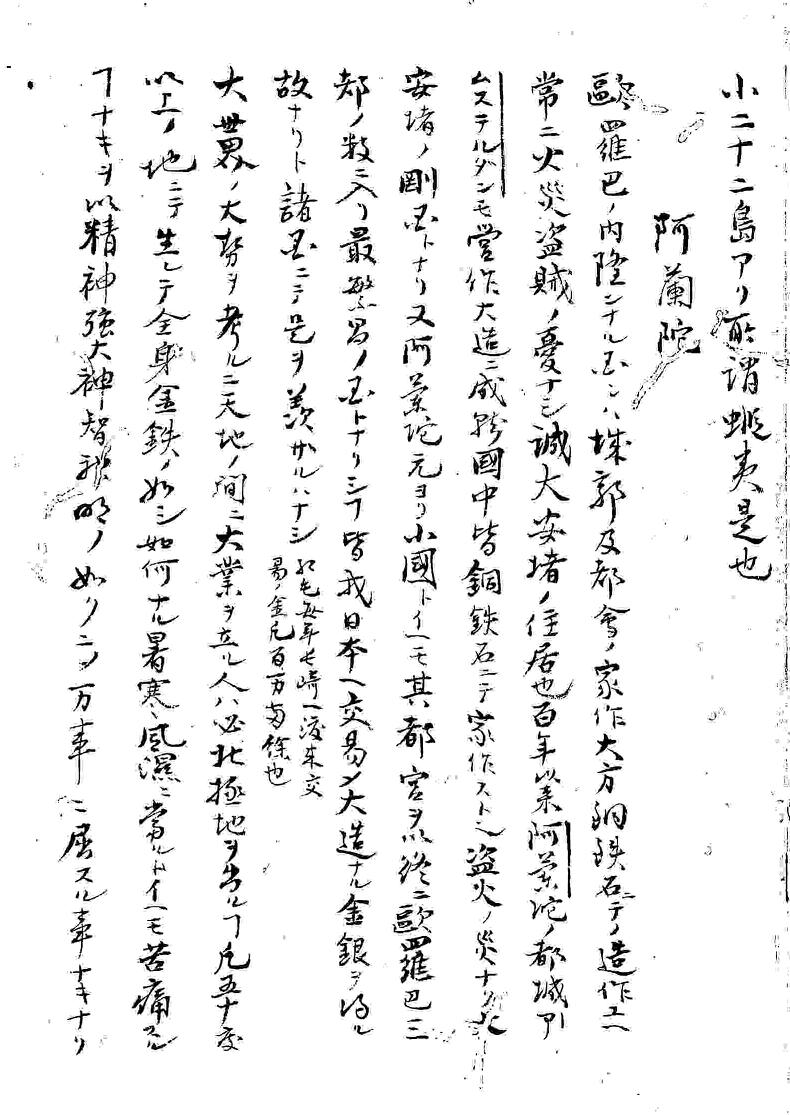 小二十二島アリ所謂蝦夷是也
阿蘭陀
歐羅巴ノ内隆ンナル国ニハ城郭及都會ノ家作大方銅鉄石ニテノ造作ユヘ
常ニ火災盗賊ノ憂ナシ誠大安堵ノ住居也百年以来阿蘭陀ノ都城アﾑ
ムステルダンモ営作大造ニ成就國中皆銅鉄石ニテ家作スト云盗火ノ災ナク
安堵ノ剛国トナリ又阿蘭陀元ヨリ小國トイヘモ其都宮ヲ以終ニ歐羅巴三
都ノ数ニ入リ最繁昌ノ国トナリシヿ皆我日本ヘ交易〆大造ナル金銀ヲ得ル
故ナリト諸国ニテ是ヲ羨サルハナシ
紅毛毎年長崎ヘ渡来交
易ノ金凡百万両餘也
大世界ノ大勢ヲ考ルニ天地ノ間ニ大業ヲ立ル人ハ必北極地ヲ出ルヿ凡五十度
以上ノ地ニテ生レテ全身金鉄ノ如シ如何ナル暑寒風濕ニ當ルトイヘモ苦痛スル
ヿナキヲ以精神強大神智聡明ノ如クニシ万事ニ屈スル事ナキナリ